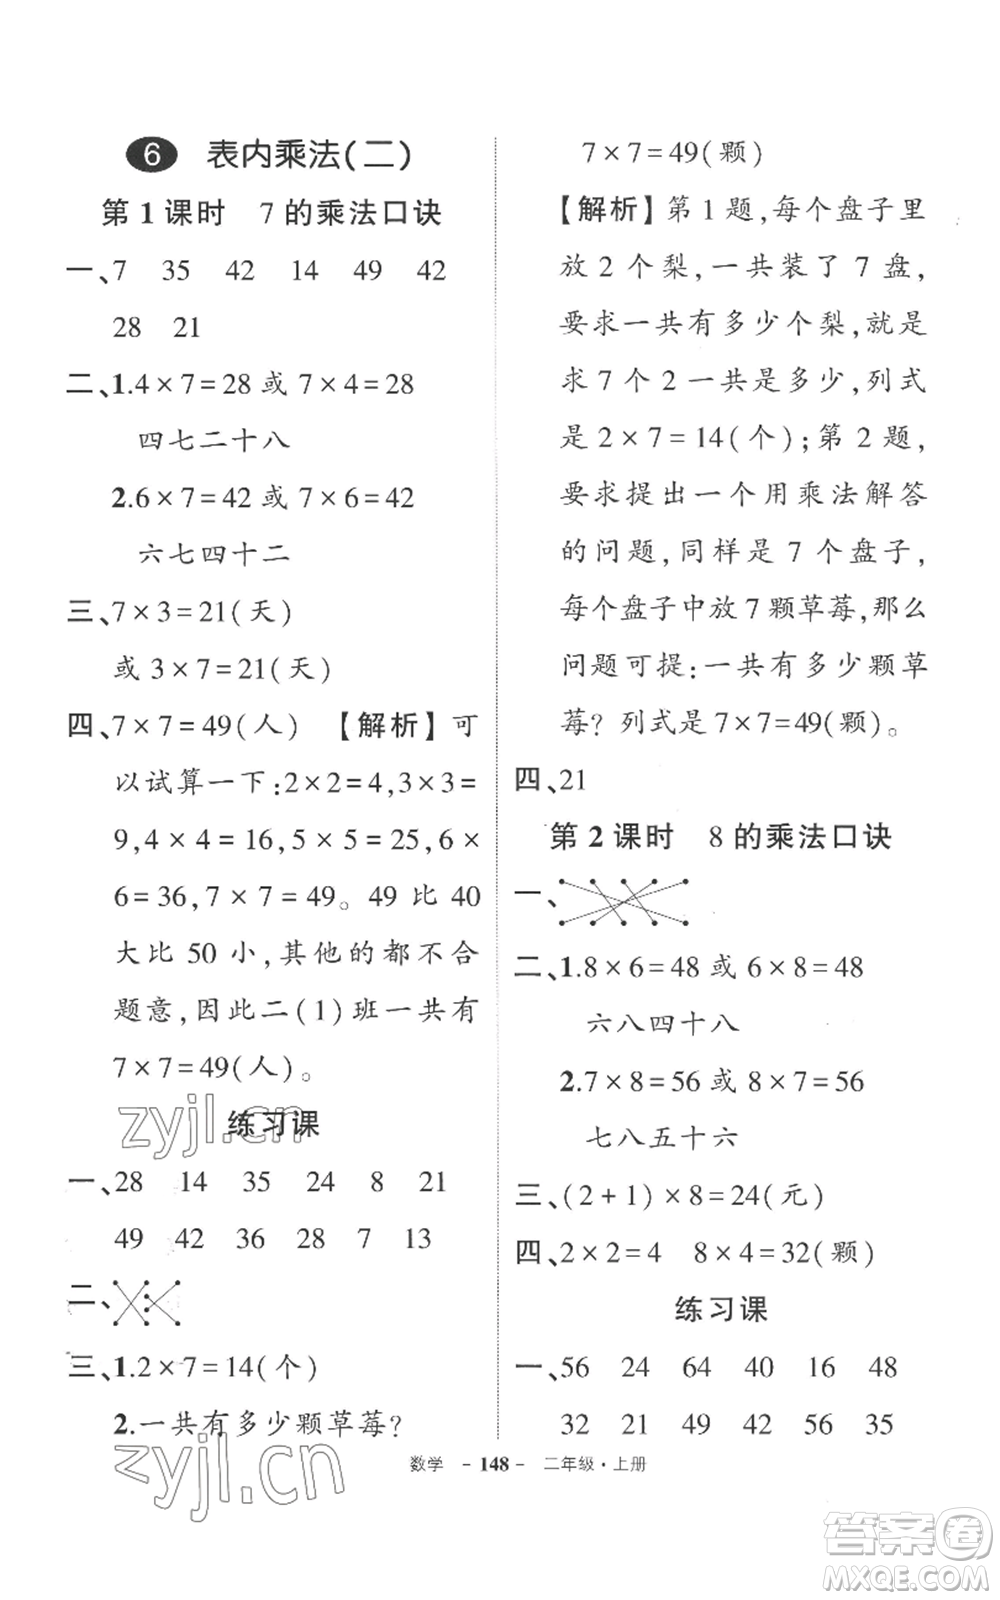 6 表内乘法(二)
第1课时 7的乘法口诀
一、7 35 42 14 49 42
28 21
二、1.4×7=28 或 7×4=28
四七二十八
2.6×7=42 或 7×6=42
六七四十二
三、7×3=21(天)
或 3×7=21(天)
四、7×7=49(人) 【解析】可
以试算一下:2×2=4,3×3=
9,4×4=16,5×5=25,6×
6=36,7×7=49。49 比 40
大比 50 小,其他的都不合合
题意,因此二(1)班一共有
7×7=49(人)。
练习课
一、28 14 35 24 8 21
49 42 36 28 7 13
二、
三、1.2×7=14(个)
2.一共有多少颗草莓?
7×7=49(颗)
【解析】第1题,每个盘子里
放2个梨,一共装了7盘,
要求一共有多少个梨,就是
求7个2一共是多少,列式
是2×7=14(个);第2题,
要求提出一个用乘法解答
的问题,同样是7个盘子,
每个盘子中放7颗草莓,那么
问题可提:一共有多少颗草
莓?列式是7×7=49(颗)。
四、21
第2课时 8的乘法口诀
一、
二、1.8×6=48 或 6×8=48
六八四十八
2.7×8=56 或 8×7=56
七八五十六
三、(2+1)×8=24(元)
四、2×2=4 8×4=32(颗)
练习课
一、56 24 64 40 16 48
32 21 49 42 56 35
数学 -148- 二年级·上册
zyjl.cn
zyjl.cn
答案圈
MXQE.COM